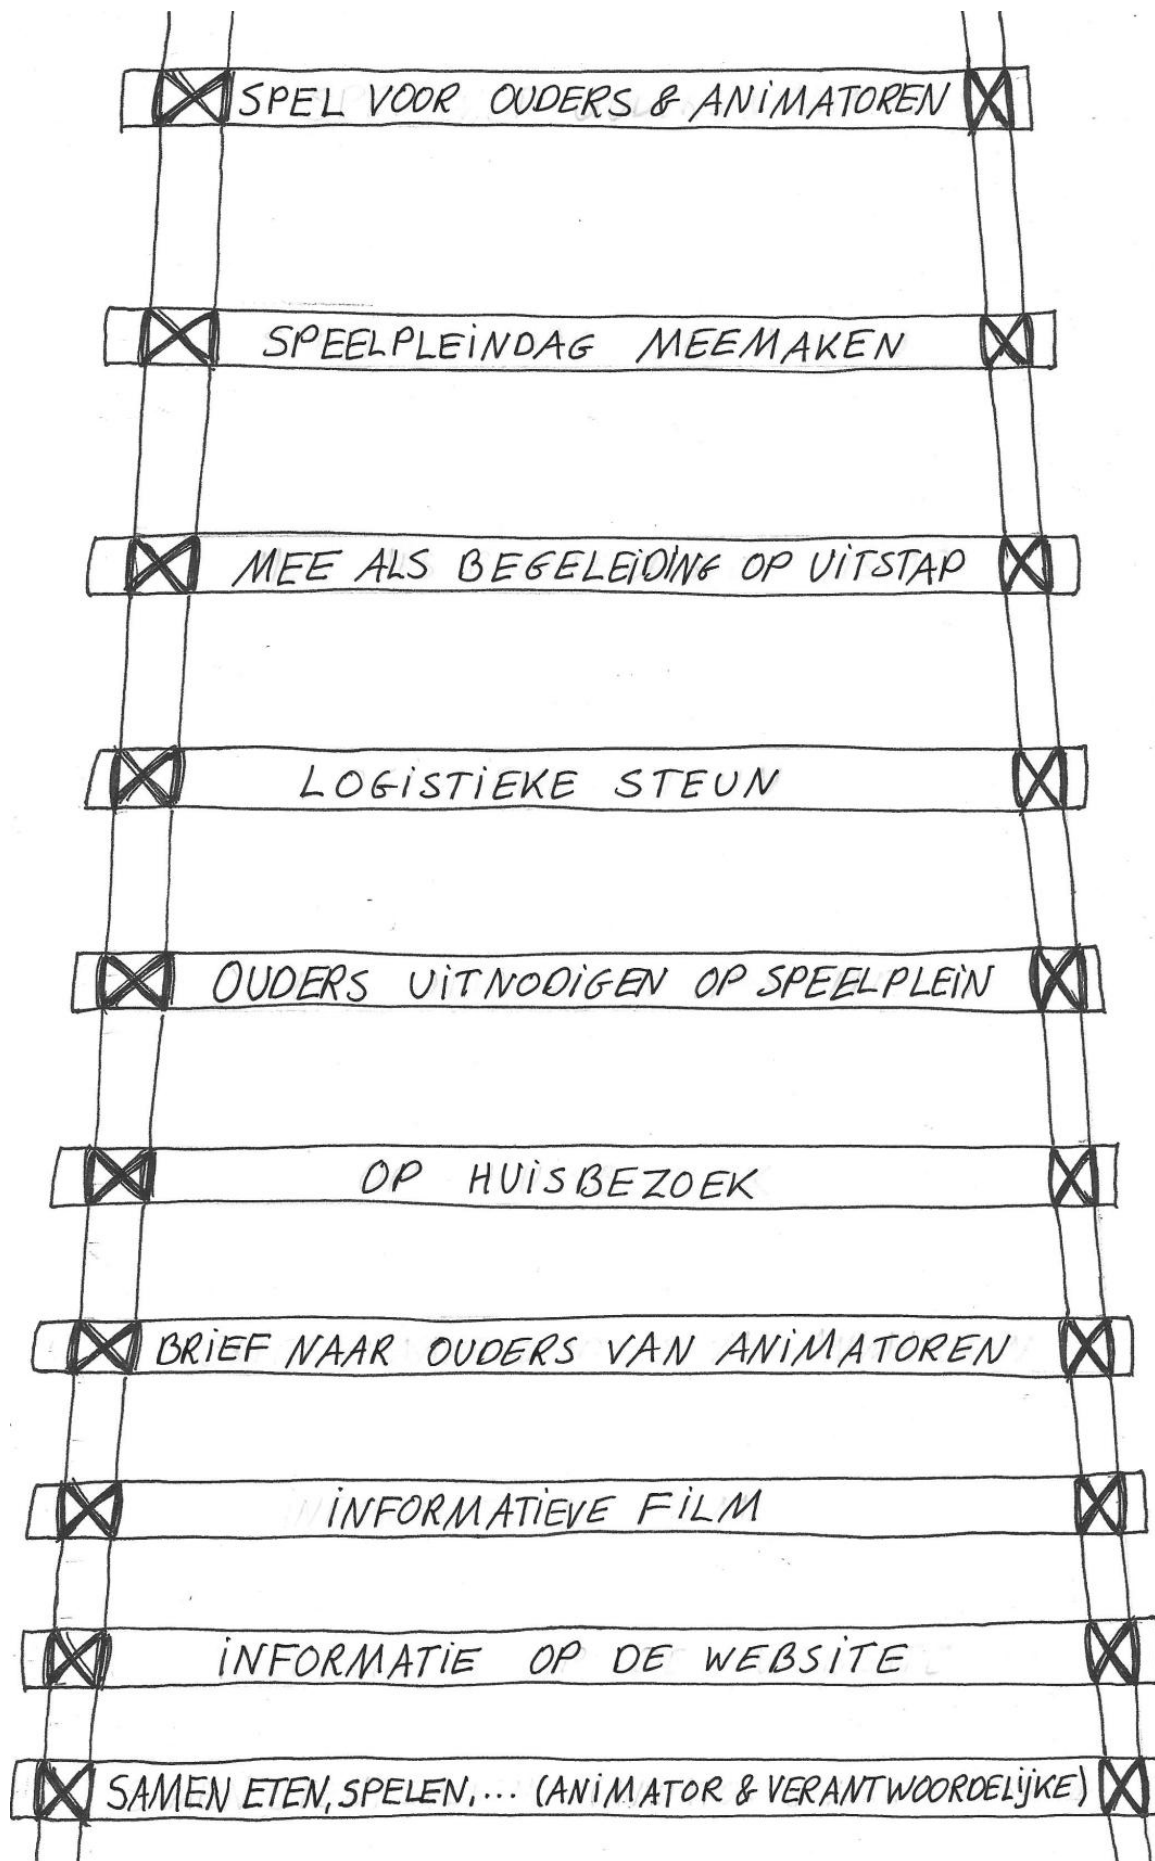 SPEL VOOR OUDERS & ANIMATOREN
SPEELPLEINDAG MEEMAKEN
MEE ALS BEGELEIDING OP UITSTAP
LOGISTIEKE STEUN
OUDERS UITNODIGEN OP SPEELPLEIN
OP HUISBEZOEK
BRIEF NAAR OUDERS VAN ANIMATOREN
INFORMATIEVE FILM
INFORMATIE OP DE WEBSITE
SAMEN ETEN, SPELEN,... (ANIMATOR & VERANTWOORDELIJKE)